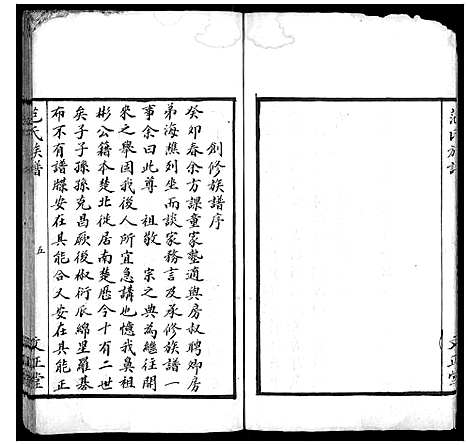 創修族譜序
癸卯春余方課童家塾適與房叔聘卿房
弟海樵列坐而談家務言及承修族譜一
事余曰此尊 祖敬 宗之典為繼往開
來之舉固我後人所宜急講也憶我鼻祖
彬公籍本楚北徙居南楚歷今十有二世
矣子子孫孫克昌厥後椒衍瓜綿星羅碁
布不有譜牒安在其能合又安在其能正
范氏族譜
五
文正堂
范氏族譜
文正堂